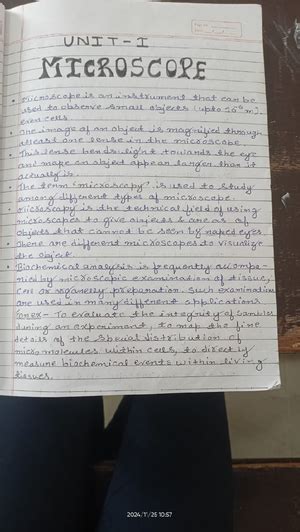 UNIT-I
MICROSCOPE
Microscope is an instrument that can be
used to observe small objects (upto 10⁻⁶ m)
even cells
The image of an object is magnified through
atleast one lense in the microscope
This lense bends light towards the eye
and make an object appear larger than it
actually is.
The term 'microscopy' is used to study
among different types of microscope
Microscopy is the technical field of using
microscopes to view objects & areas of
objects that cannot be seen by naked eyes.
There are different microscopes to visualize
the object.
Biochemical analysis is frequently accompa-
nied by microscopic examination of tissue,
cell organelle preparation. Such examination
are used in many different applications
for ex- To evaluate the integrity of samples
during an experiment, to map the fine
details of the special distribution of
micromolecules within cells, to directly
measure biochemical events within living
tissues.
2024/7/25 10:57